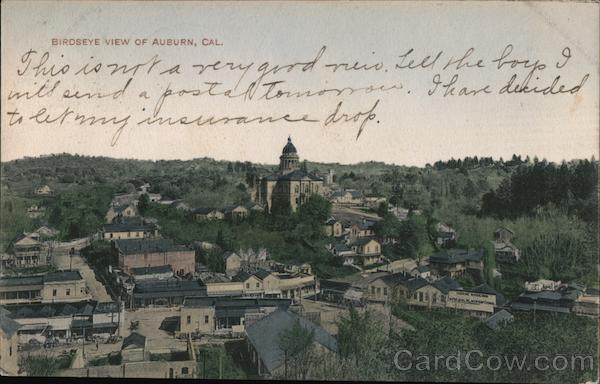 BIRDSEYE VIEW OF AUBURN, CAL.
This is not a very good veiw. Tell the boys I
will send a postal tomorrow. I have decided
to let my insurance drop.
CardCow.com